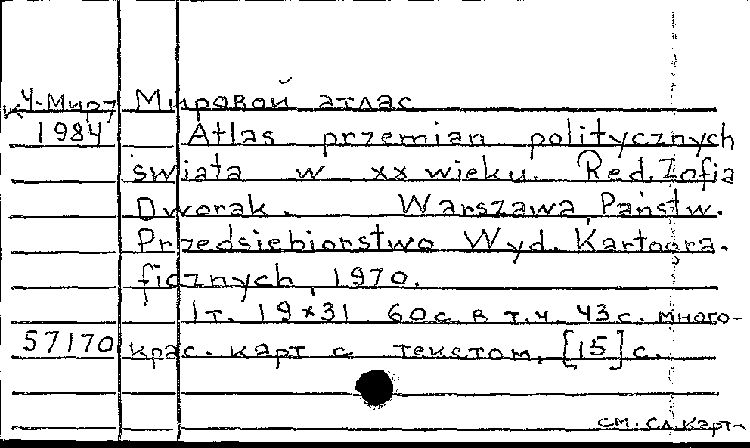 кЧ-Мир7 Мировой атлас
1984 Atlas przemian politycznych
świata w xx wieku. Red. Zofia
Dworak. Warszawa, Państw.
Przedsiebiorstwo Wyd. Kartogra-
ficznych, 1970.
1т. 19×31 60с. в т.ч. 43с. много-
57170 крас. карт с текстом, [15] с.
см. сл. карт.